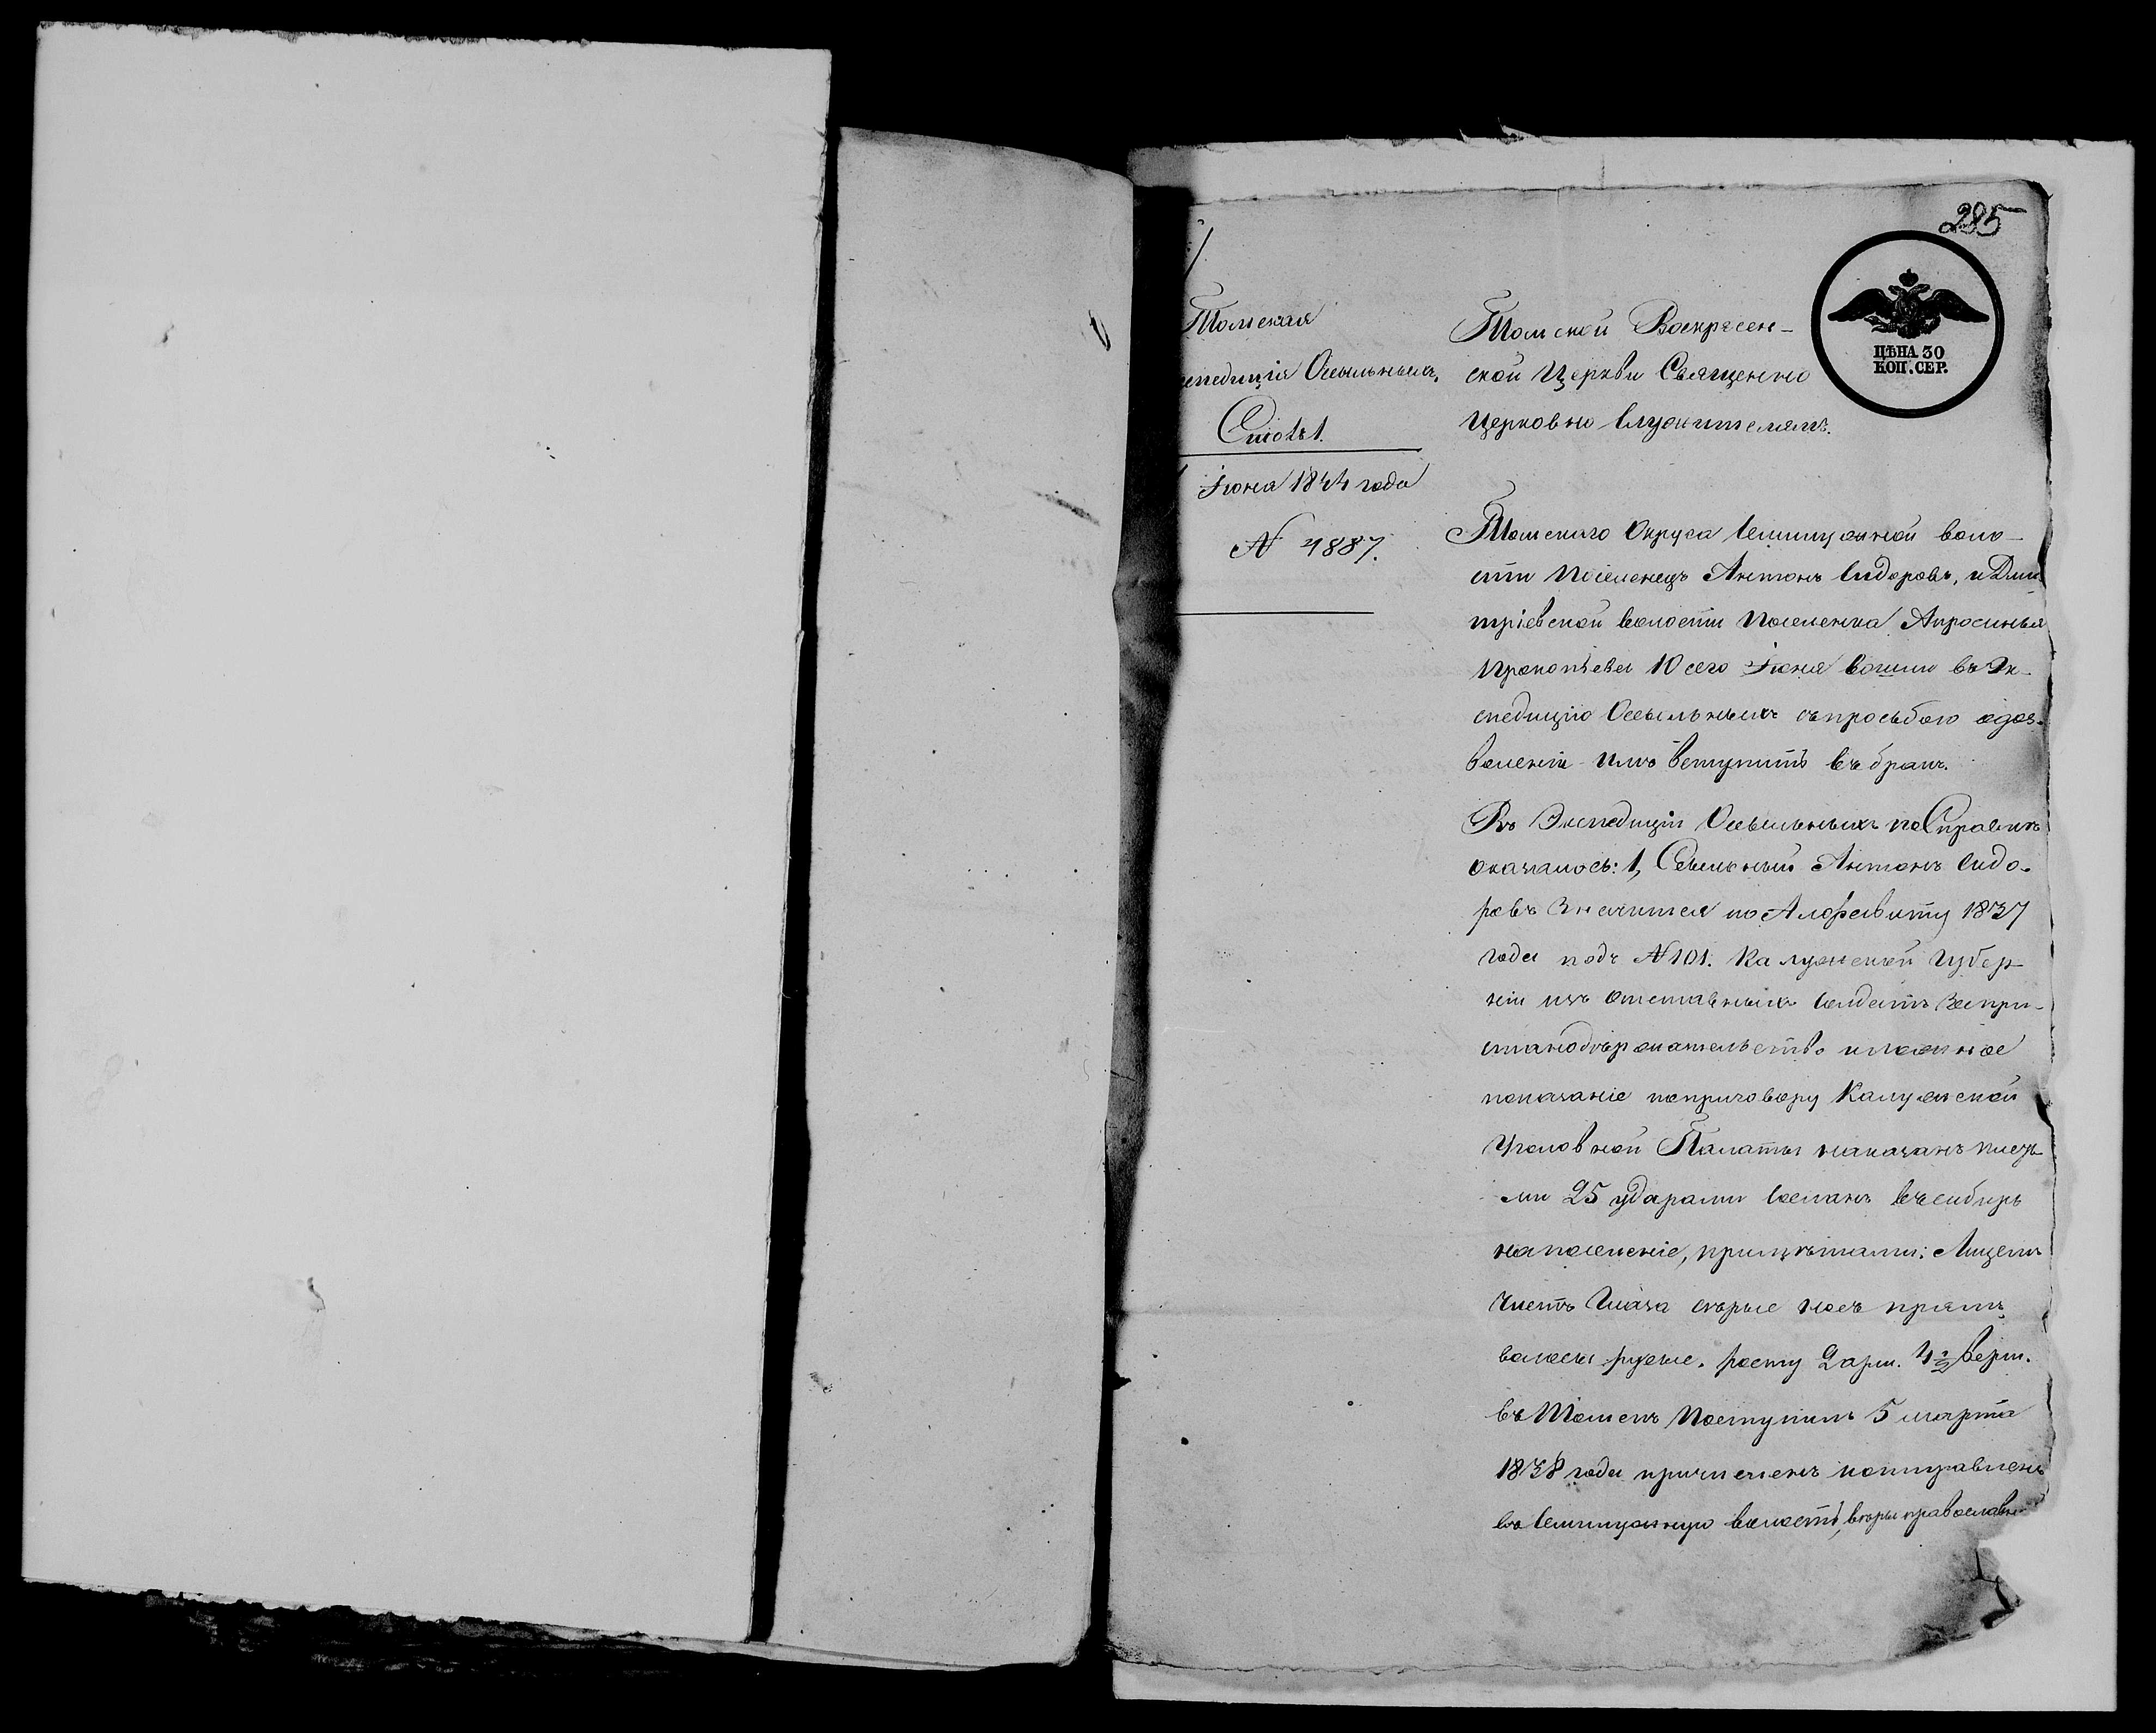 285
ЦѢНА 30
КОП. СЕР.
Томская
спедиція Ссыльныхъ
Столъ 1.
Іюня 1844 года
N 4887.
Томской Воскресен-
ской Церкви Священно
Церковно служителямъ.
Томскаго Округа Семилужной воло-
сти Поселенецъ Антонъ Сидоровъ, и Дми-
тріевской волости Поселенка Апросинья
Прокопьева 10 сего Іюня вошли въ Эк-
спедицію Ссыльныхъ съ просьбою одоз-
воленіи имъ вступить въ бракъ.
Въ Экспедиціи Ссыльныхъ по Справкѣ
оказалось: 1, Ссыльный Антонъ Сидо-
ровъ значится по Алфавиту 1837
года подъ N 101. Калужской Губер-
ніи изъ отставныхъ солдатъ за при-
станодержательство и ложное
показаніе по приговору Калужской
Уголовной Палаты наказанъ плеть-
ми 25 ударами сосланъ въ Сибирь
на поселеніе, примѣтами: Лицемъ
чистъ Глаза сѣрые носъ прямъ
волосы русые. росту 2 арш. 4 1/2 верш.
въ Томскъ Поступилъ 5 марта
1838 года причисленъ и отправленъ
въ Семилужную волость, вѣры православн